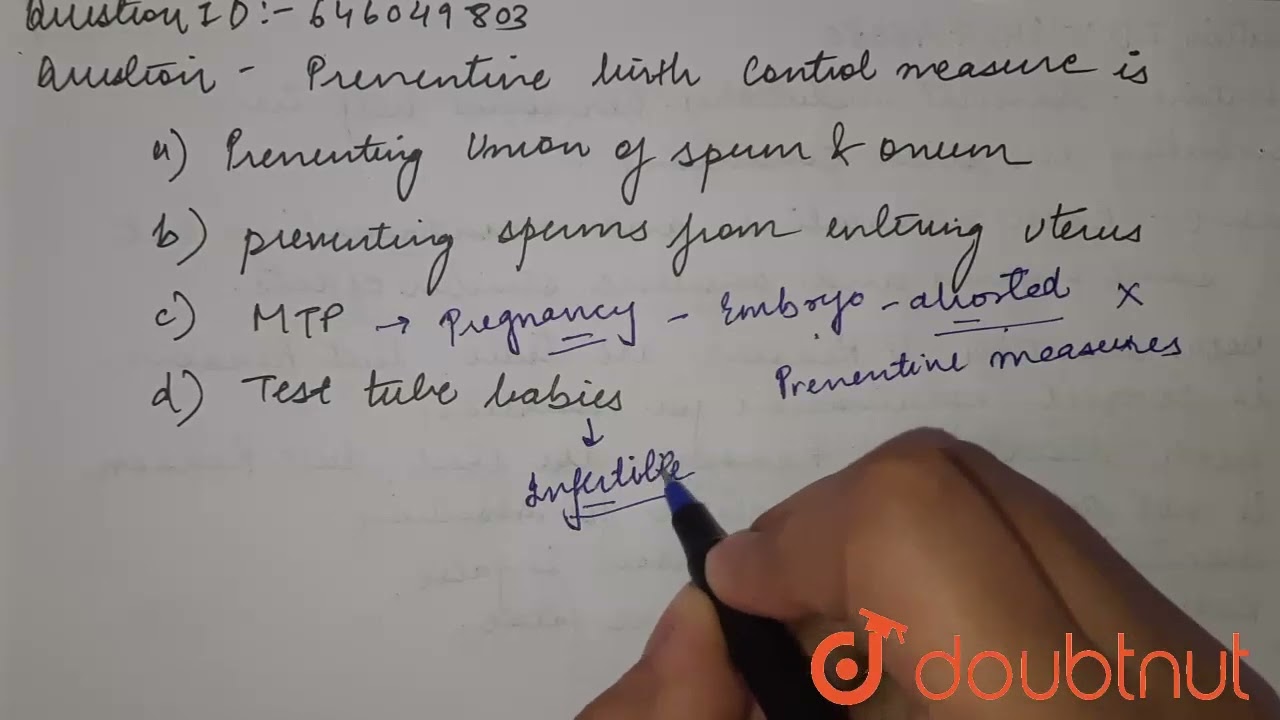 Question ID:- 646049803
Question - Preventive birth control measure is
a) Preventing Union of sperm & ovum
b) preventing sperms from entering uterus
c) MTP → Pregnancy - Embryo - aborted ×
Preventive measures
d) Test tube babies
↓
Infertible
doubtnut